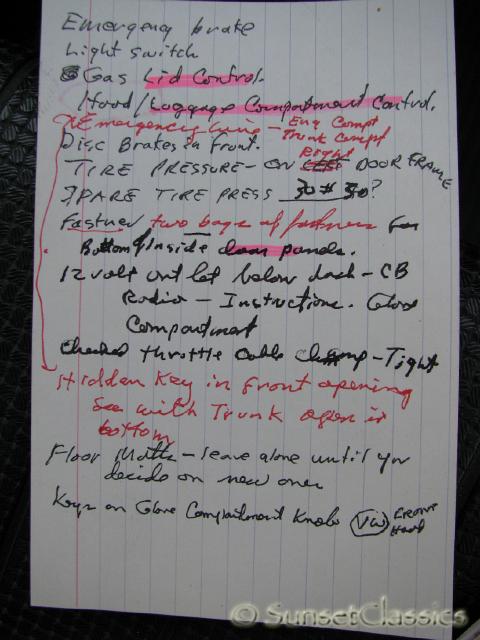 Emergency brake
Light switch
Gas Lid Control.
Hood/Luggage Compartment Control.
Emergency wire - Eng Compt
Trunk Compt
Disc Brakes in Front. Right
TIRE PRESSURE - ON DOOR FRAME
SPARE TIRE PRESS 30# 30?
Fastner two bags of fastners for
Bottom/Inside door panels.
12 volt outlet below dash - CB
Radio - Instructions. Glove
Compartment
Checked throttle cable Clamp - Tight
Hidden Key in front opening
See with Trunk open is
bottom
Floor Matts - leave alone until you
decide on new ones
Keys on Glove Compartment Knobs VW FRONT
Hood
© SunsetClassics